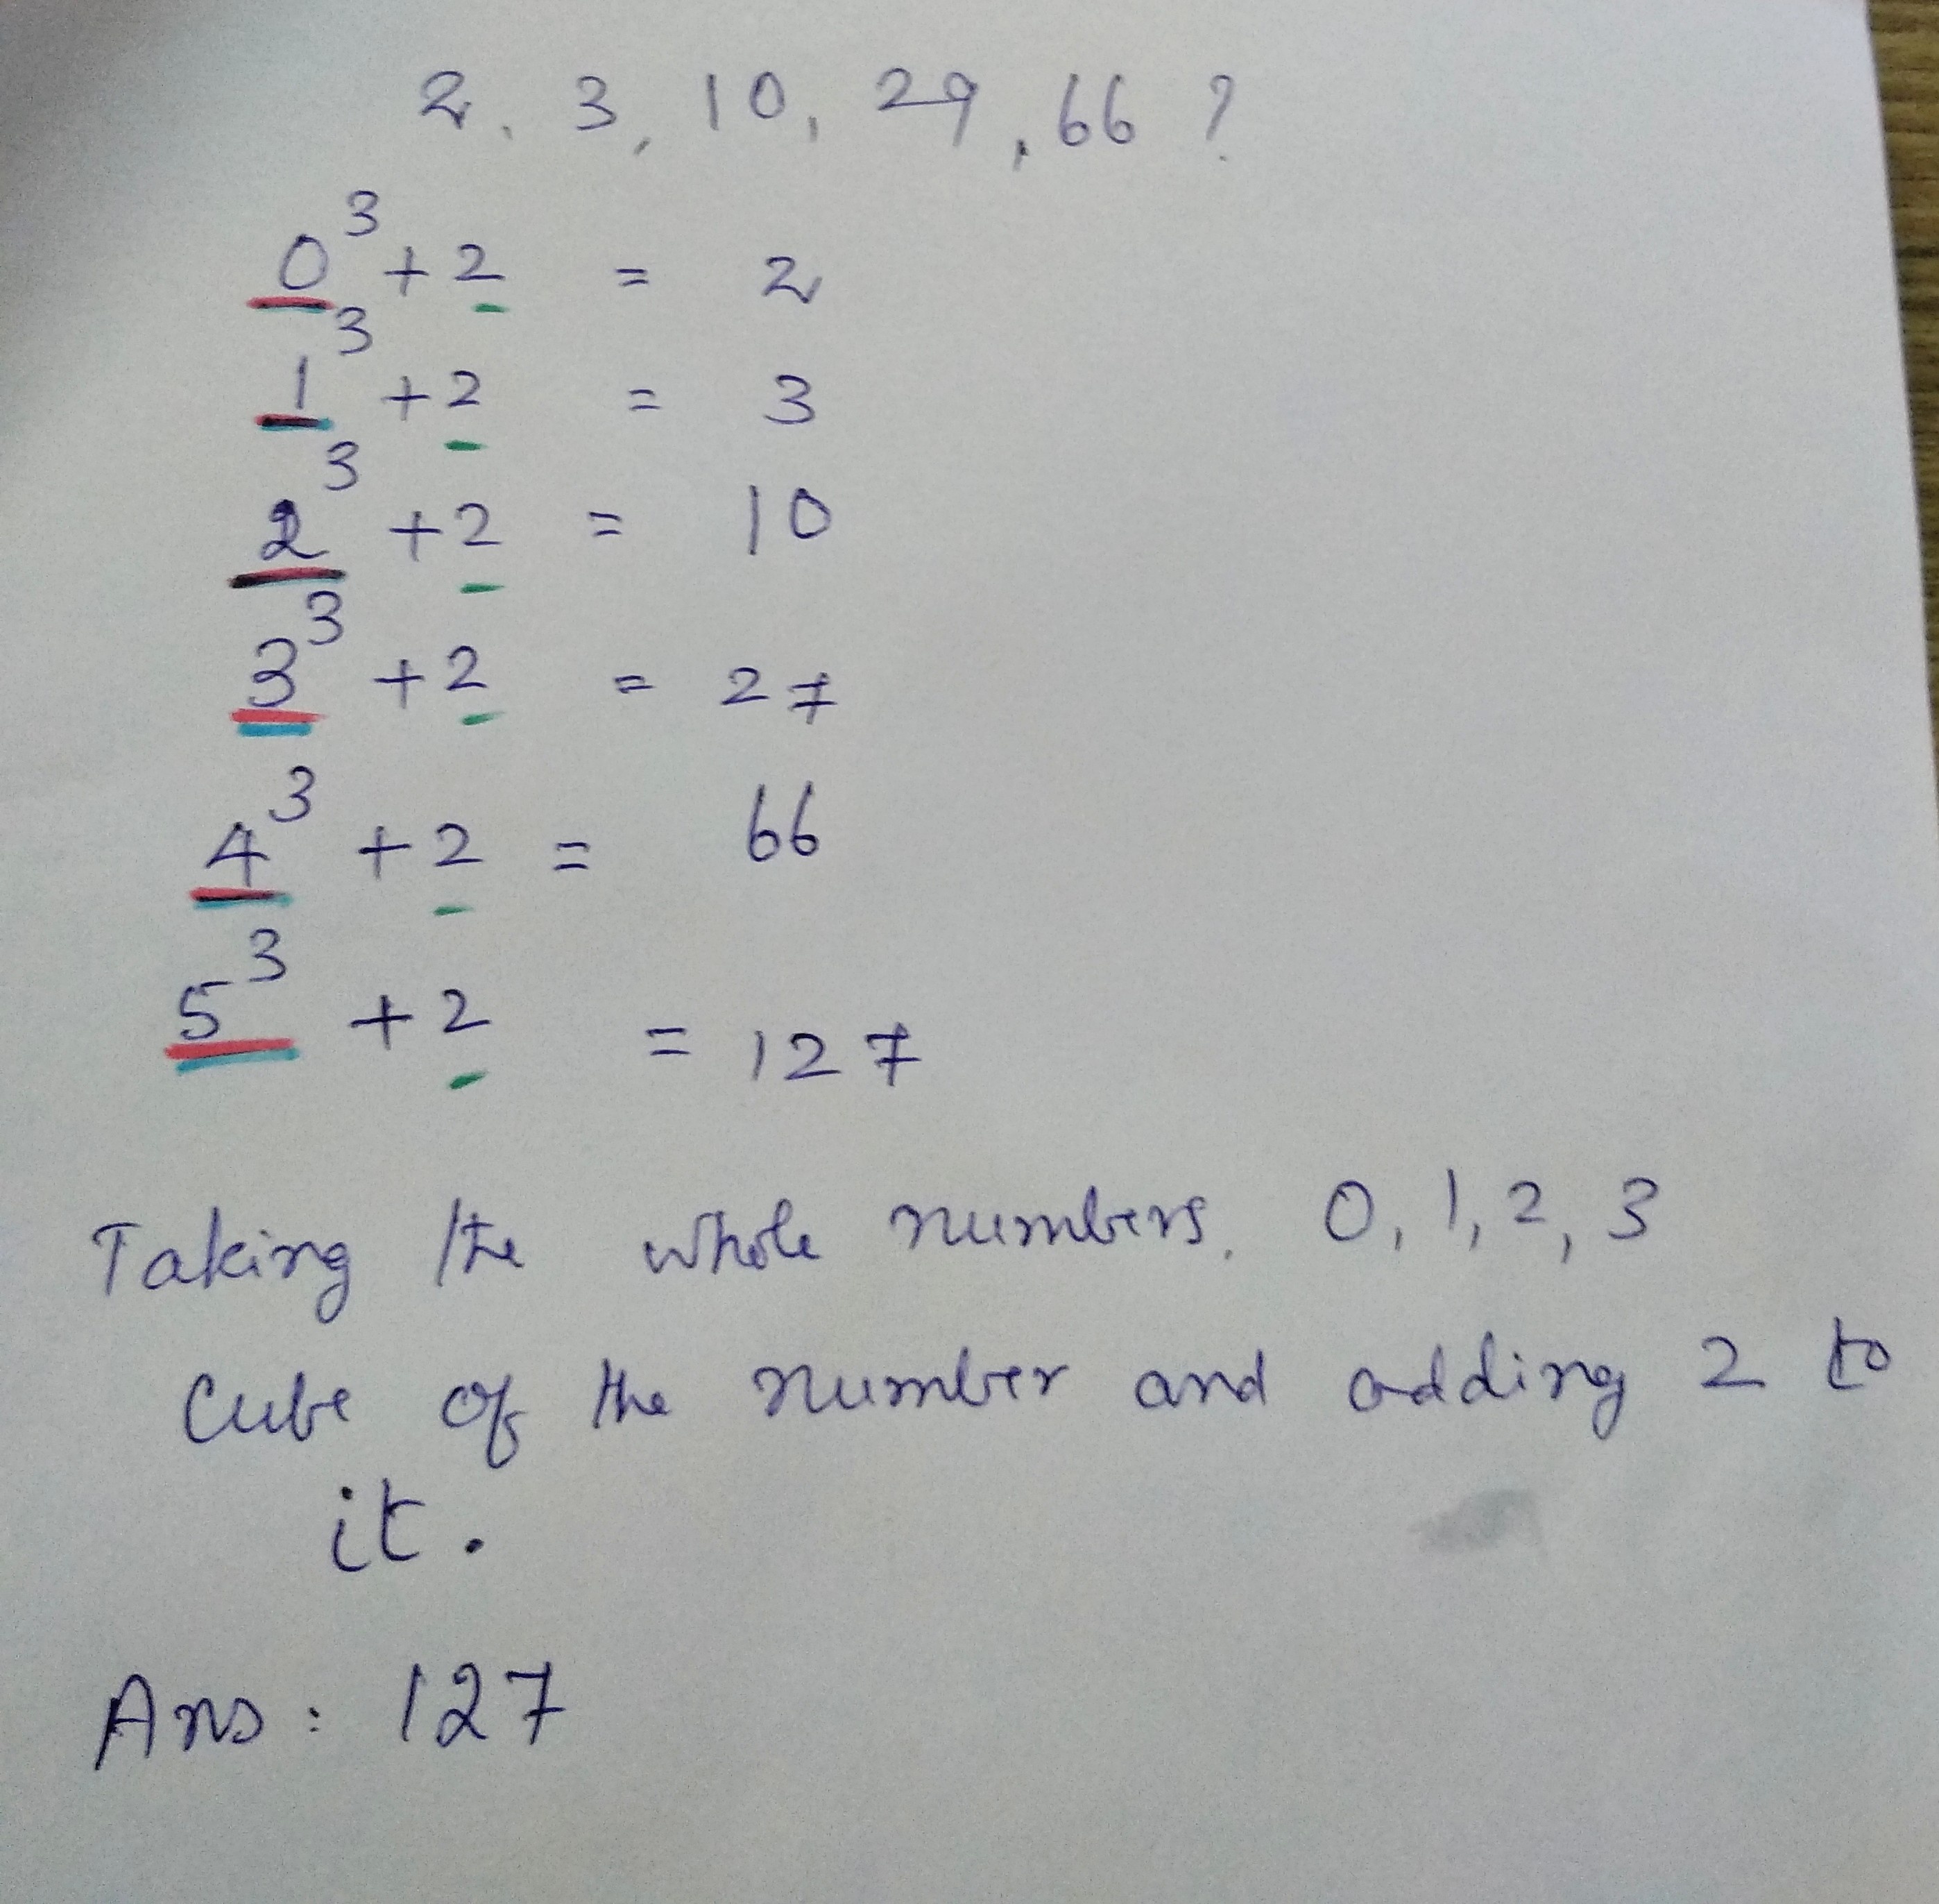 2, 3, 10, 29, 66 ?
0³ + 2 = 2
1³ + 2 = 3
2³ + 2 = 10
3³ + 2 = 27
4³ + 2 = 66
5³ + 2 = 127
Taking the whole numbers. 0, 1, 2, 3
Cube of the number and adding 2 to
it.
Ans: 127